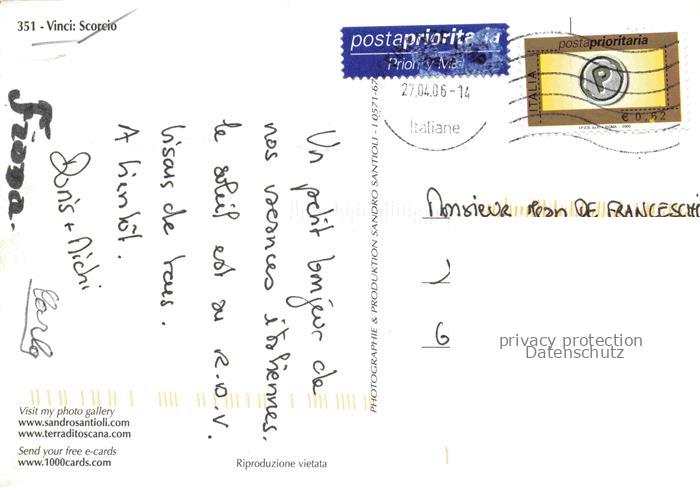 351 - Vinci: Scorcio
postaprioritaria
Priority Mail
27.04.06-14
Italiane
postaprioritaria
ITALIA
P
€ 0,62
Un petit bonjour de
nos vacances italiennes.
le soleil est au R.D.V.
bisous de tous.
A bientôt.
Doris + Michi
Carlo
Monsieur DE FRANCESCHI
1
6
privacy protection
Datenschutz
PHOTOGRAPHIE & PRODUKTION SANDRO SANTIOLI - I 0571-67
Visit my photo gallery
www.sandrosantioli.com
www.terraditoscana.com
Send your free e-cards
www.1000cards.com
Riproduzione vietata